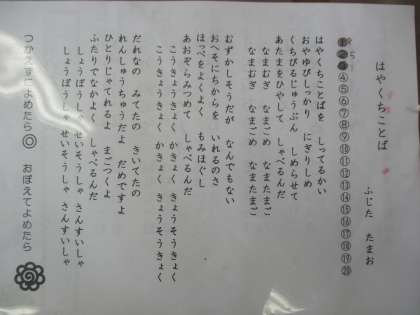 はやくちことば
ふじた たまお
④⑤⑥⑦⑧⑨⑩⑪⑫⑬⑭⑮⑯⑰⑱⑲⑳
はやくちことばを しってるかい
おやゆびしっかり にぎりしめ
くちびるじゅうぶん しめらせて
あたまをひやして しゃべるんだ
なまむぎ なまごめ なまたまご
なまむぎ なまごめ なまたまご
むずかしそうだが なんでもない
おへそにちからを いれるのさ
ほっぺをよくよく もみほぐし
あおぞらみつめて しゃべるんだ
こうきょうきょく かきょく きょうそうきょく
こうきょうきょく かきょく きょうそうきょく
だれなの みてたの きいてたの
れんしゅうちゅうだよ だめですよ
ひとりじゃてれるよ まごつくよ
ふたりでなかよく しゃべるんだ
しょうぼうしゃ せいそうしゃ さんすいしゃ
しょうぼうしゃ せいそうしゃ さんすいしゃ
つかえずによめたら◎ おぼえてよめたら